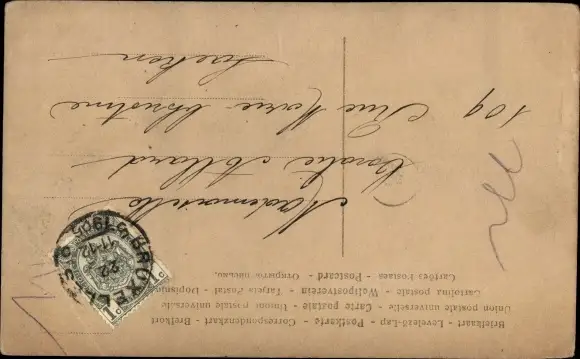 Briefkaart - Levelerő-Lap - Postkarte - Correspondenzkart - Brefkort
Union postale universelle - Carte postale - Unione postale universale
Cartolina postale - Weltpostverein - Tarjeta Postal - Dopisnice
Cartões Postaes - Postcard - Открытое письмо.
Mademoiselle
Coralie Allard
109 Rue Marie Christine
Laeken
BRUXELLES
22
11-12